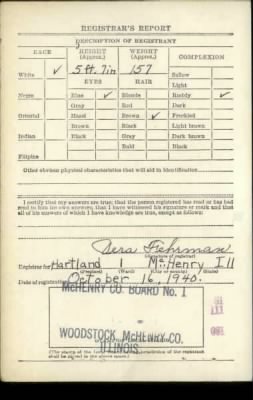 REGISTRAR'S REPORT
DESCRIPTION OF REGISTRANT
RACE HEIGHT (Approx.) WEIGHT (Approx.) COMPLEXION
White ✓ 5 ft. 7 in 157 Sallow
EYES HAIR Light
Negro Blue ✓ Blonde Ruddy ✓
Gray Red Dark
Oriental Hazel Brown ✓ Freckled
Brown Black Light brown
Indian Black Gray Dark brown
Bald Black
Filipino
Other obvious physical characteristics that will aid in identification
I certify that my answers are true; that the person registered has read or has had
read to him his own answers; that I have witnessed his signature or mark and that
all of his answers of which I have knowledge are true, except as follows:
Fehrman
(Signature of registrar)
Registrar for Hartland 1 McHenry Ill
(Precinct) (Ward) (City or county) (State)
Date of registration October 16, 1940.
McHENRY CO. BOARD No. 1
WOODSTOCK, McHENRY CO.
ILLINOIS
(The stamp of the Local Board having jurisdiction of the registrant
shall be placed in the above space)